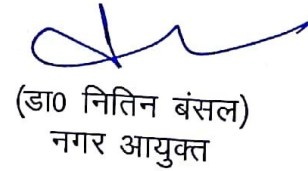 (डा0 नितिन बंसल)
नगर आयुक्त